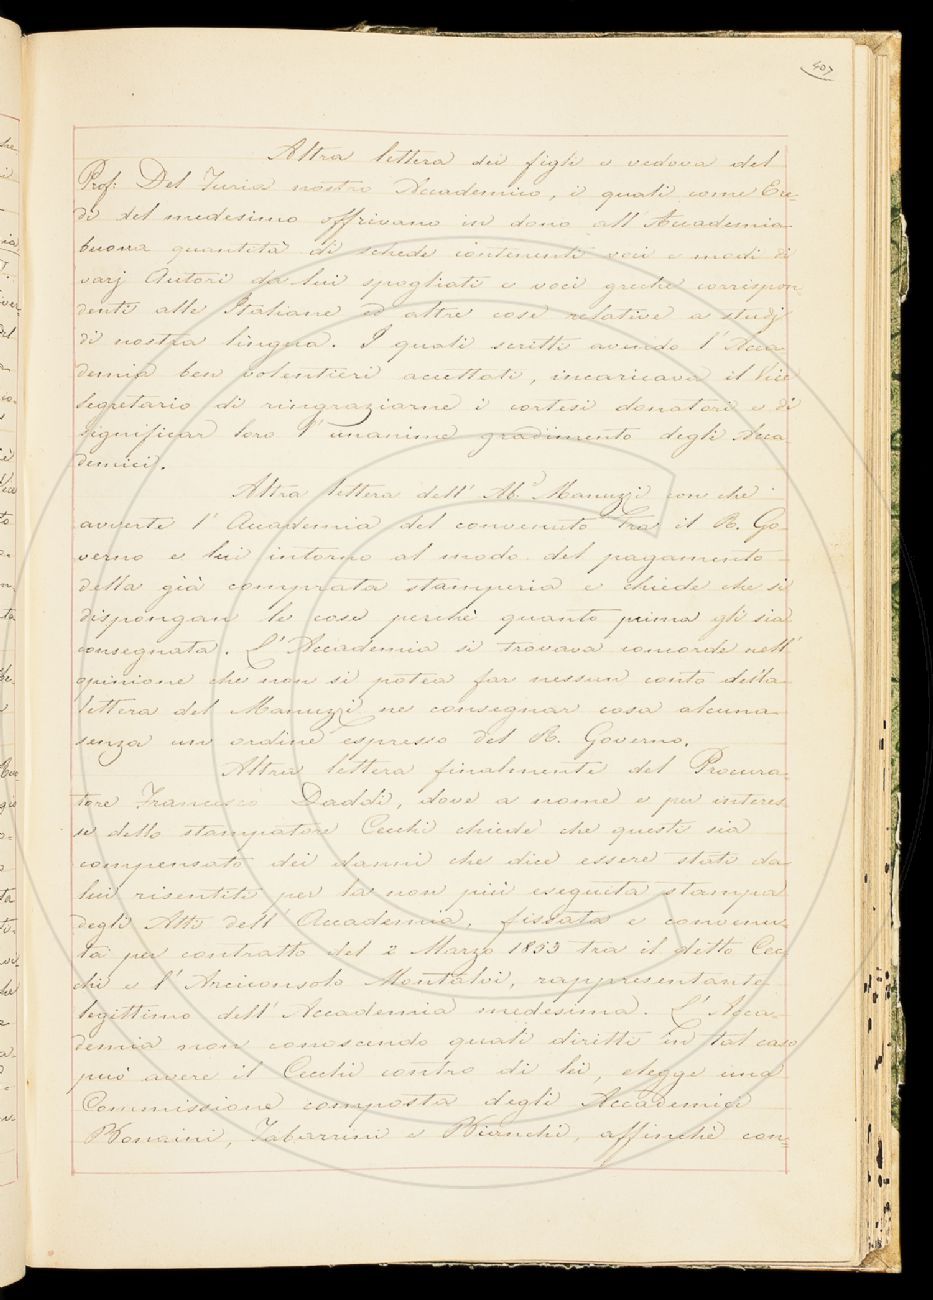 407
Altra lettera dei figli e vedova del
Prof: Del Furia nostro Accademico, i quali come Ere-
di del medesimo offrivano in dono all'Accademia
buona quantità di schede contenenti voci e modi di
varj Autori da lui spogliati e voci greche corrispon
denti alle Italiane ed altre cose relative a studj
di nostra lingua. I quali scritti avendo l'Acca-
demia ben volentieri accettati, incaricava il Vice
Segretario di ringraziarne i cortesi donatori e di
significar loro l'unanime gradimento degli Acca
demici.
Altra lettera dell'Ab.e Manuzzi con che
avverte l'Accademia del convenuto tra il R. Go-
verno e lui intorno al modo del pagamento
della già comprata stamperia e chiede che si
dispongan le cose perchè quanto prima gli sia
consegnata. L'Accademia si trovava concorde nell'
opinione che non si potea far nessun conto della
lettera del Manuzzi ne consegnar cosa alcuna
senza un ordine espresso del R. Governo.
Altra lettera finalmente del Procura-
tore Francesco Daddi, dove a nome e per interes-
se dello stampatore Cecchi chiede che questi sia
compensato dei danni che dice essere stati da
lui risentiti per la non più eseguita stampa
degli Atti dell'Accademia, fissata e convenu-
ta per contratto del 2 Marzo 1853 tra il detto Cec-
chi e l'Arciconsolo Montalvi, rappresentante
legittimo dell'Accademia medesima. L'Acca-
demia non conoscendo quali diritti in tal caso
può avere il Cecchi contro di lei, elegge una
Commissione composta degli Accademici
Bonaini, Tabarrini e Bianchi, affinchè con=